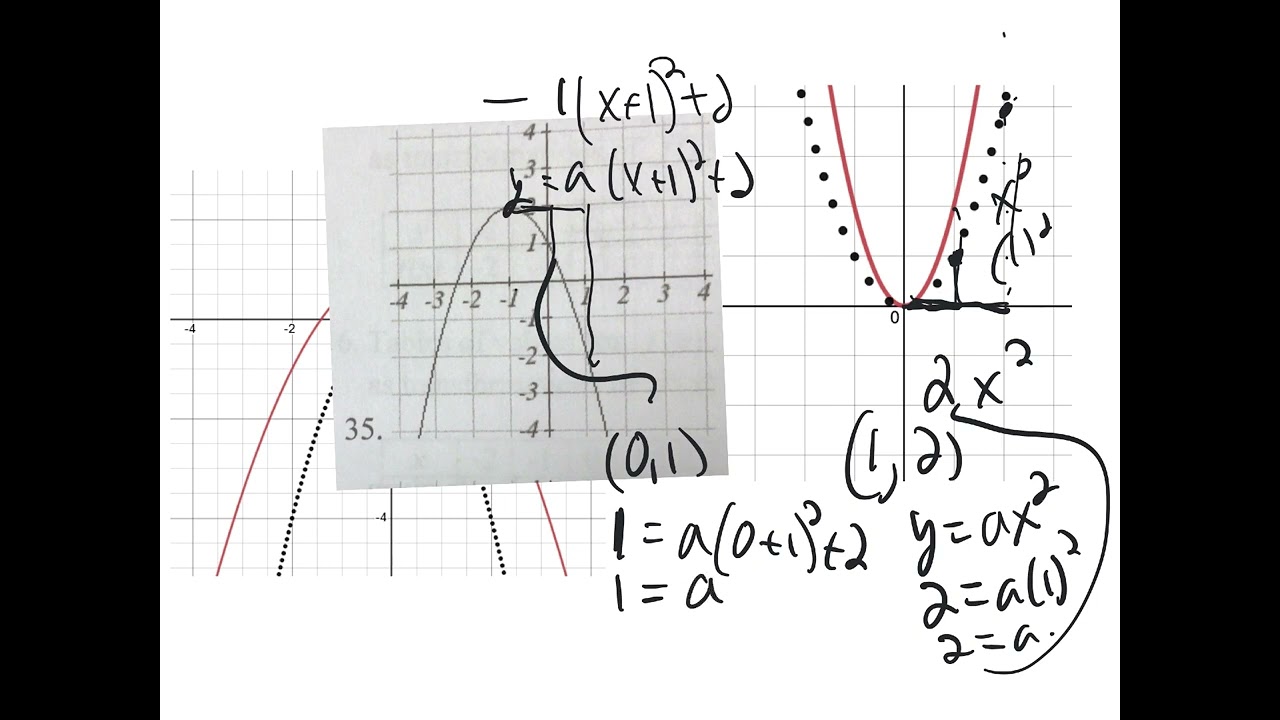 - 1(x+1)²+2
y = a(x+1)²+2
4
3
2
1
-4 -3 -2 -1 1 2 3 4
-1
-2
-3
-4
35.
-4 -2
-4
(0,1)
1 = a(0+1)²+2
1 = a
0
(1)²
2x²
(1, 2)
y = ax²
2 = a(1)²
2 = a.